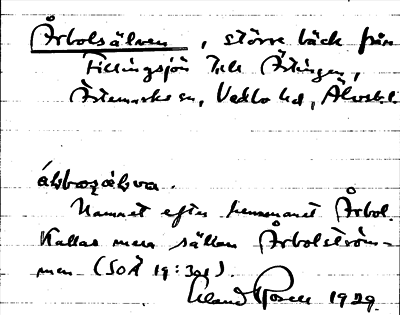 Årbolsälven, större bäck från
Fillingsjön till Ärtingen,
Ärtemarks sn, Vedbo hd, Älvsb. l.
åbboɀäbva.
Namnet efter hemmanet Årbol.
Kallas men sällan Årbolström-
men (SOÄ 19:301).
Erland Rosell 1929.